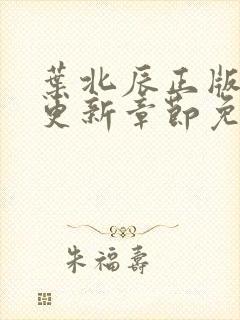 葉北辰正版
更新章節免
朱福壽